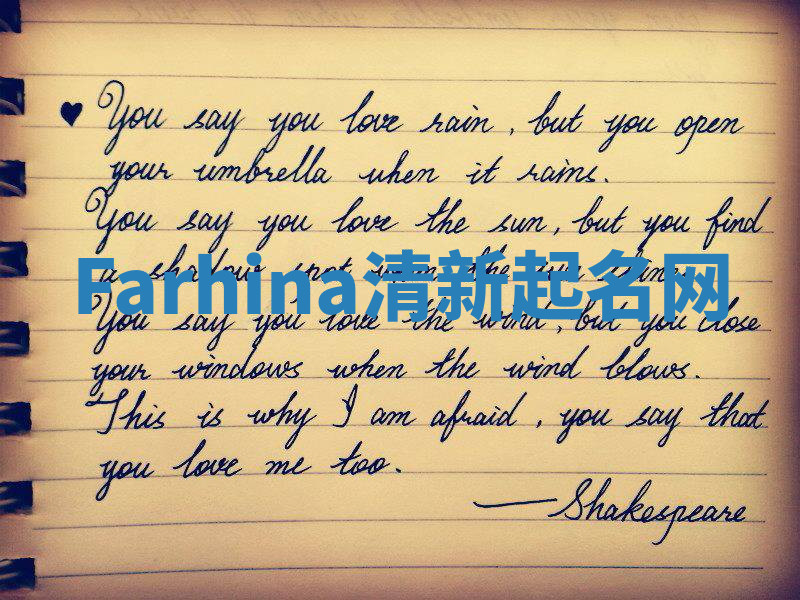 ♥ You say you love rain, but you open
your umbrella when it rains.
You say you love the sun, but you find
a shadow spot when the sun shines.
Farhina清新起名网
You say you love the wind, but you close
your windows when the wind blows.
This is why I am afraid, you say that
you love me too.
— Shakespeare